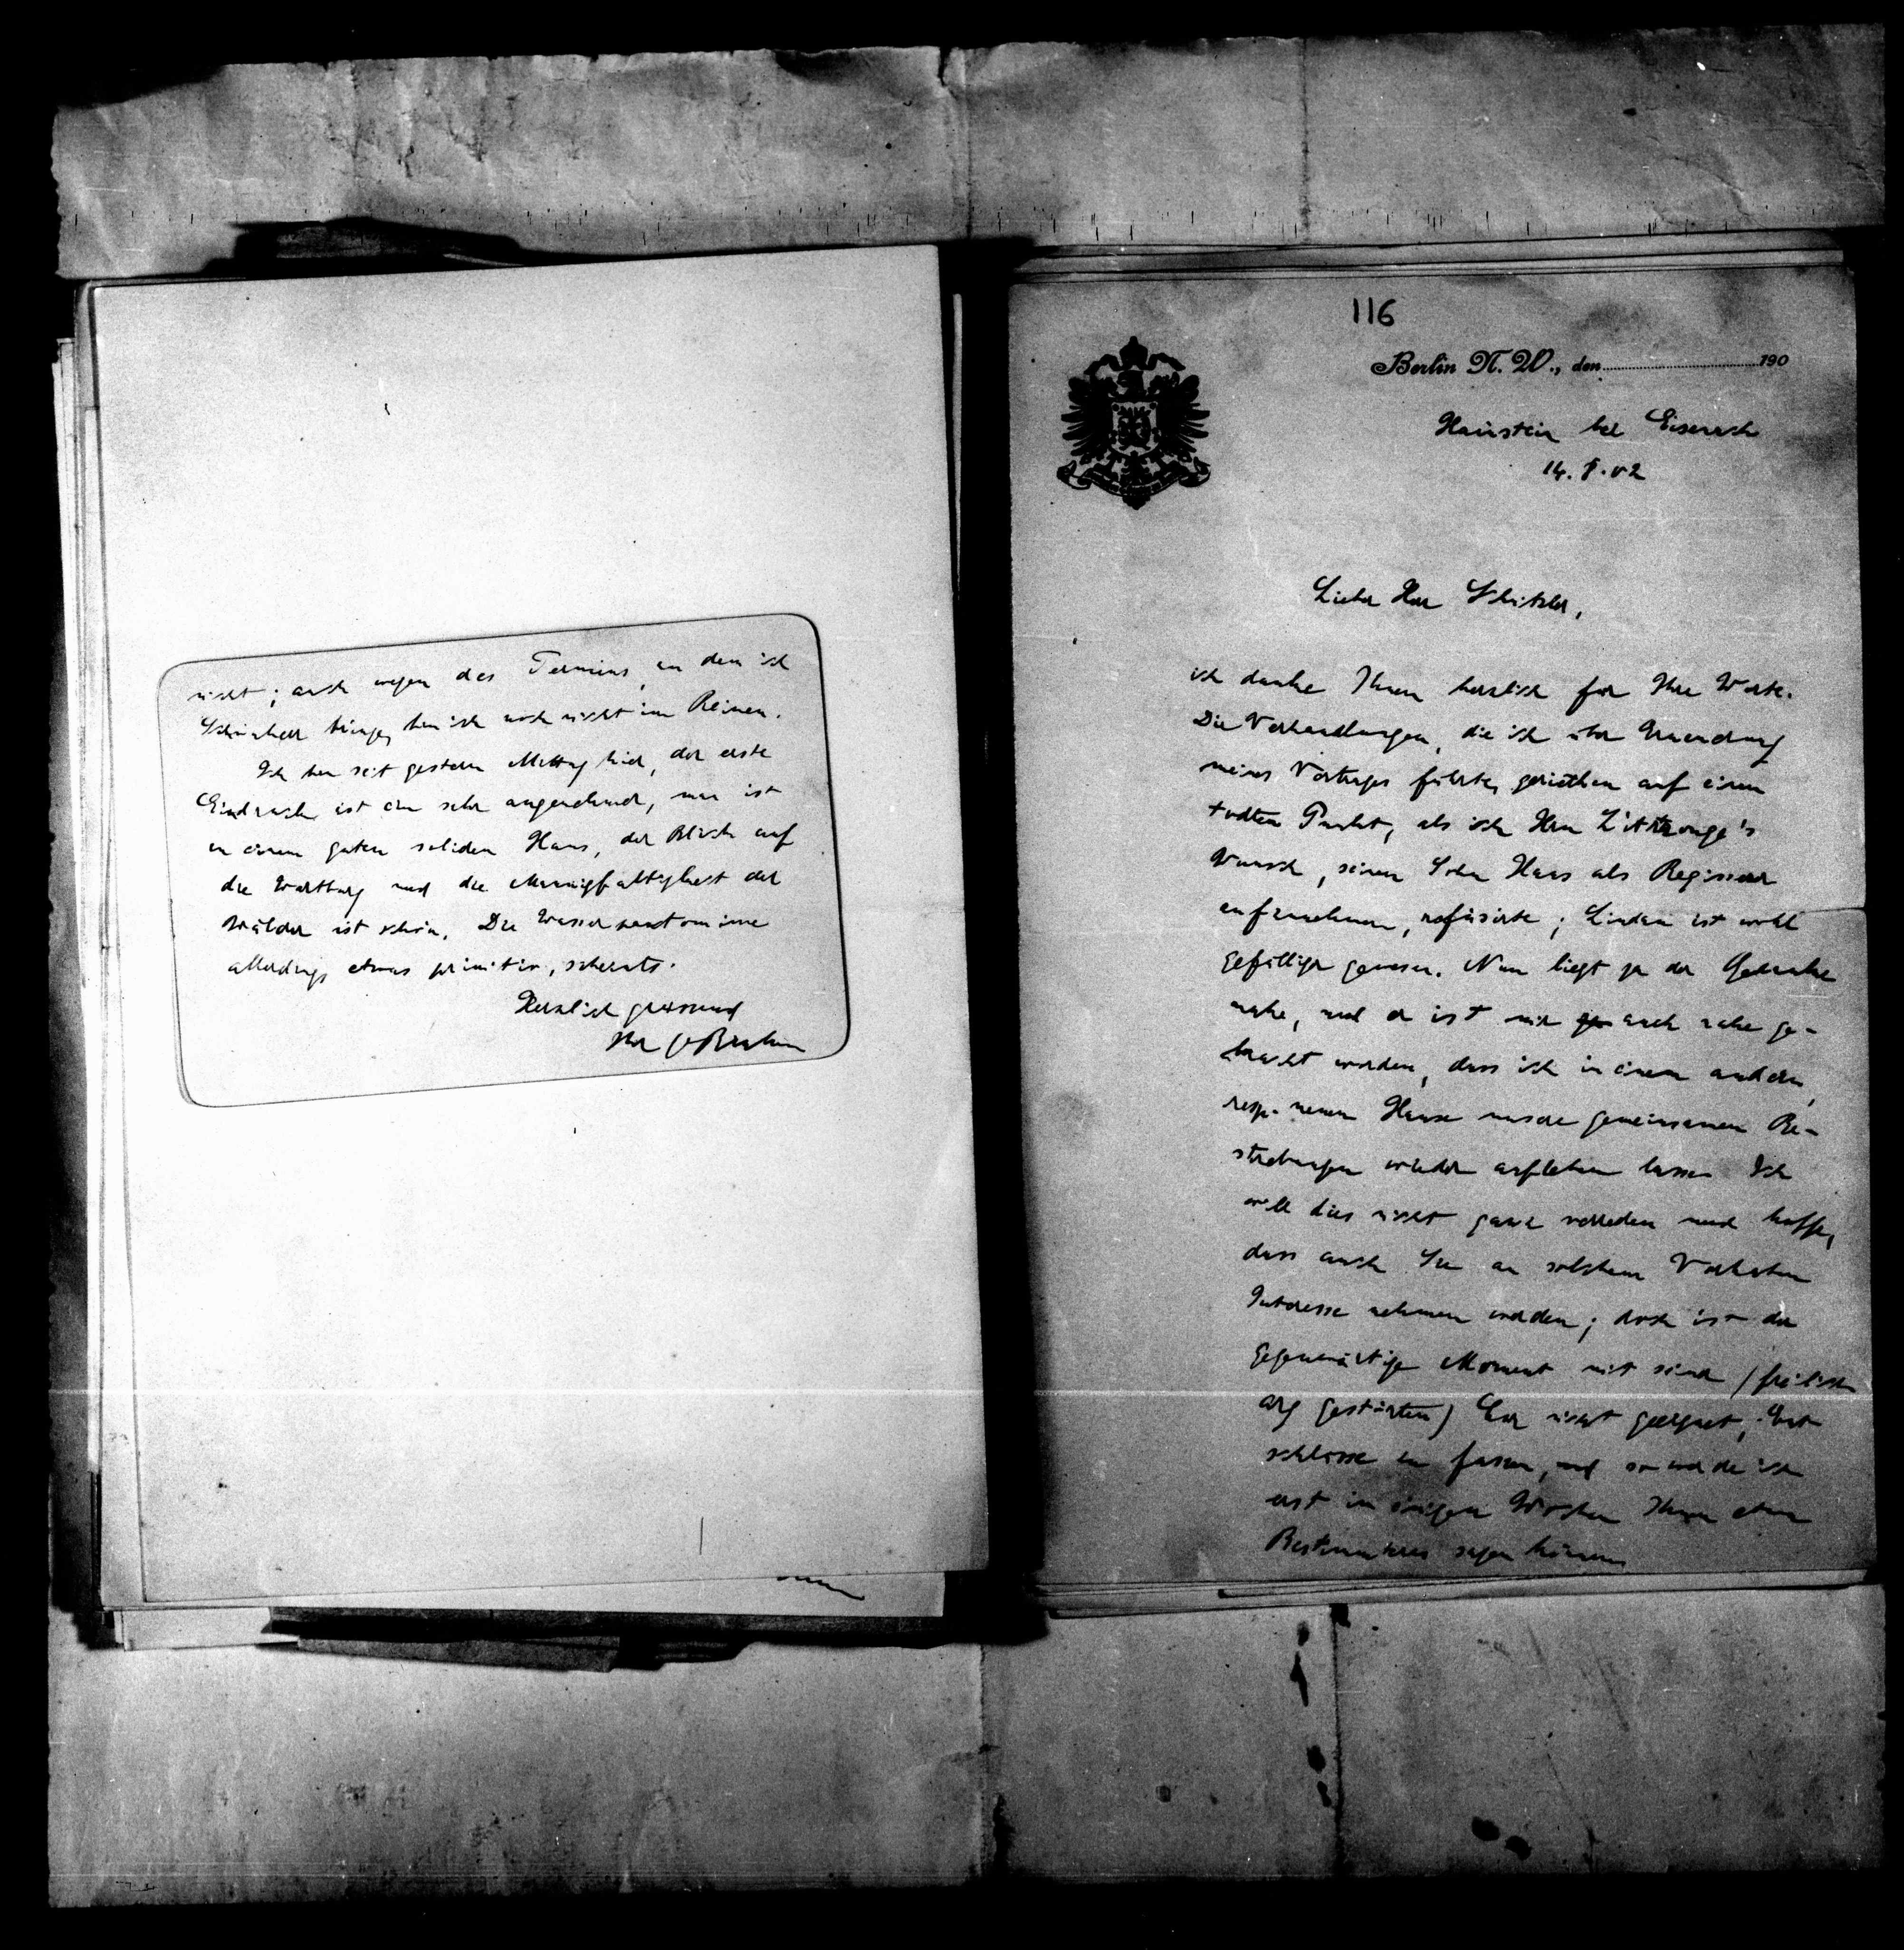 nicht; auch wegen des Termins, an dem ich
Schönherr bringe, bin ich noch nicht im Reinen.
Ich bin seit gestern Mittag hier, der erste
Eindruck ist ein sehr angenehmer, man ist
in einem guten soliden Haus, der Blick auf
die Wartburg und die Mannigfaltigkeit der
Wälder ist schön. Die Wasserpantomime
allerdings etwas primitiv, scheints.
Herzlich grüssend
Ihr O Brahm
116
Berlin N. W., den 190
Hainstein bei Eisenach
14. 5. 02
Lieber Herr Schnitzler,
ich danke Ihnen herzlich für Ihre Worte.
Die Verhandlungen, die ich über Erneuerung
meines Vertrages führte, geriethen auf einen
todten Punkt, als ich Herrn L'Arronge's
Wunsch, seinen Sohn Hans als Regisseur
aufzunehmen, refüsirte; Lindau ist wohl
gefälliger gewesen. Nun liegt ja der Gedanke
nahe, und er ist mir auch nahe ge-
bracht worden, dass ich in einem andern,
resp. neuen Hause unsere gemeinsamen Be-
strebungen wieder aufleben lasse. Ich
will dies nicht ganz verreden und hoffe,
dass auch Sie an solchem Vorhaben
Interesse nehmen werden; doch ist der
gegenwärtige Moment mit seiner (freilich
arg gestörten) Cur nicht geeignet, Ent-
schlüsse zu fassen, und so werde ich
erst in einigen Wochen Ihnen etwas
Bestimmteres sagen können